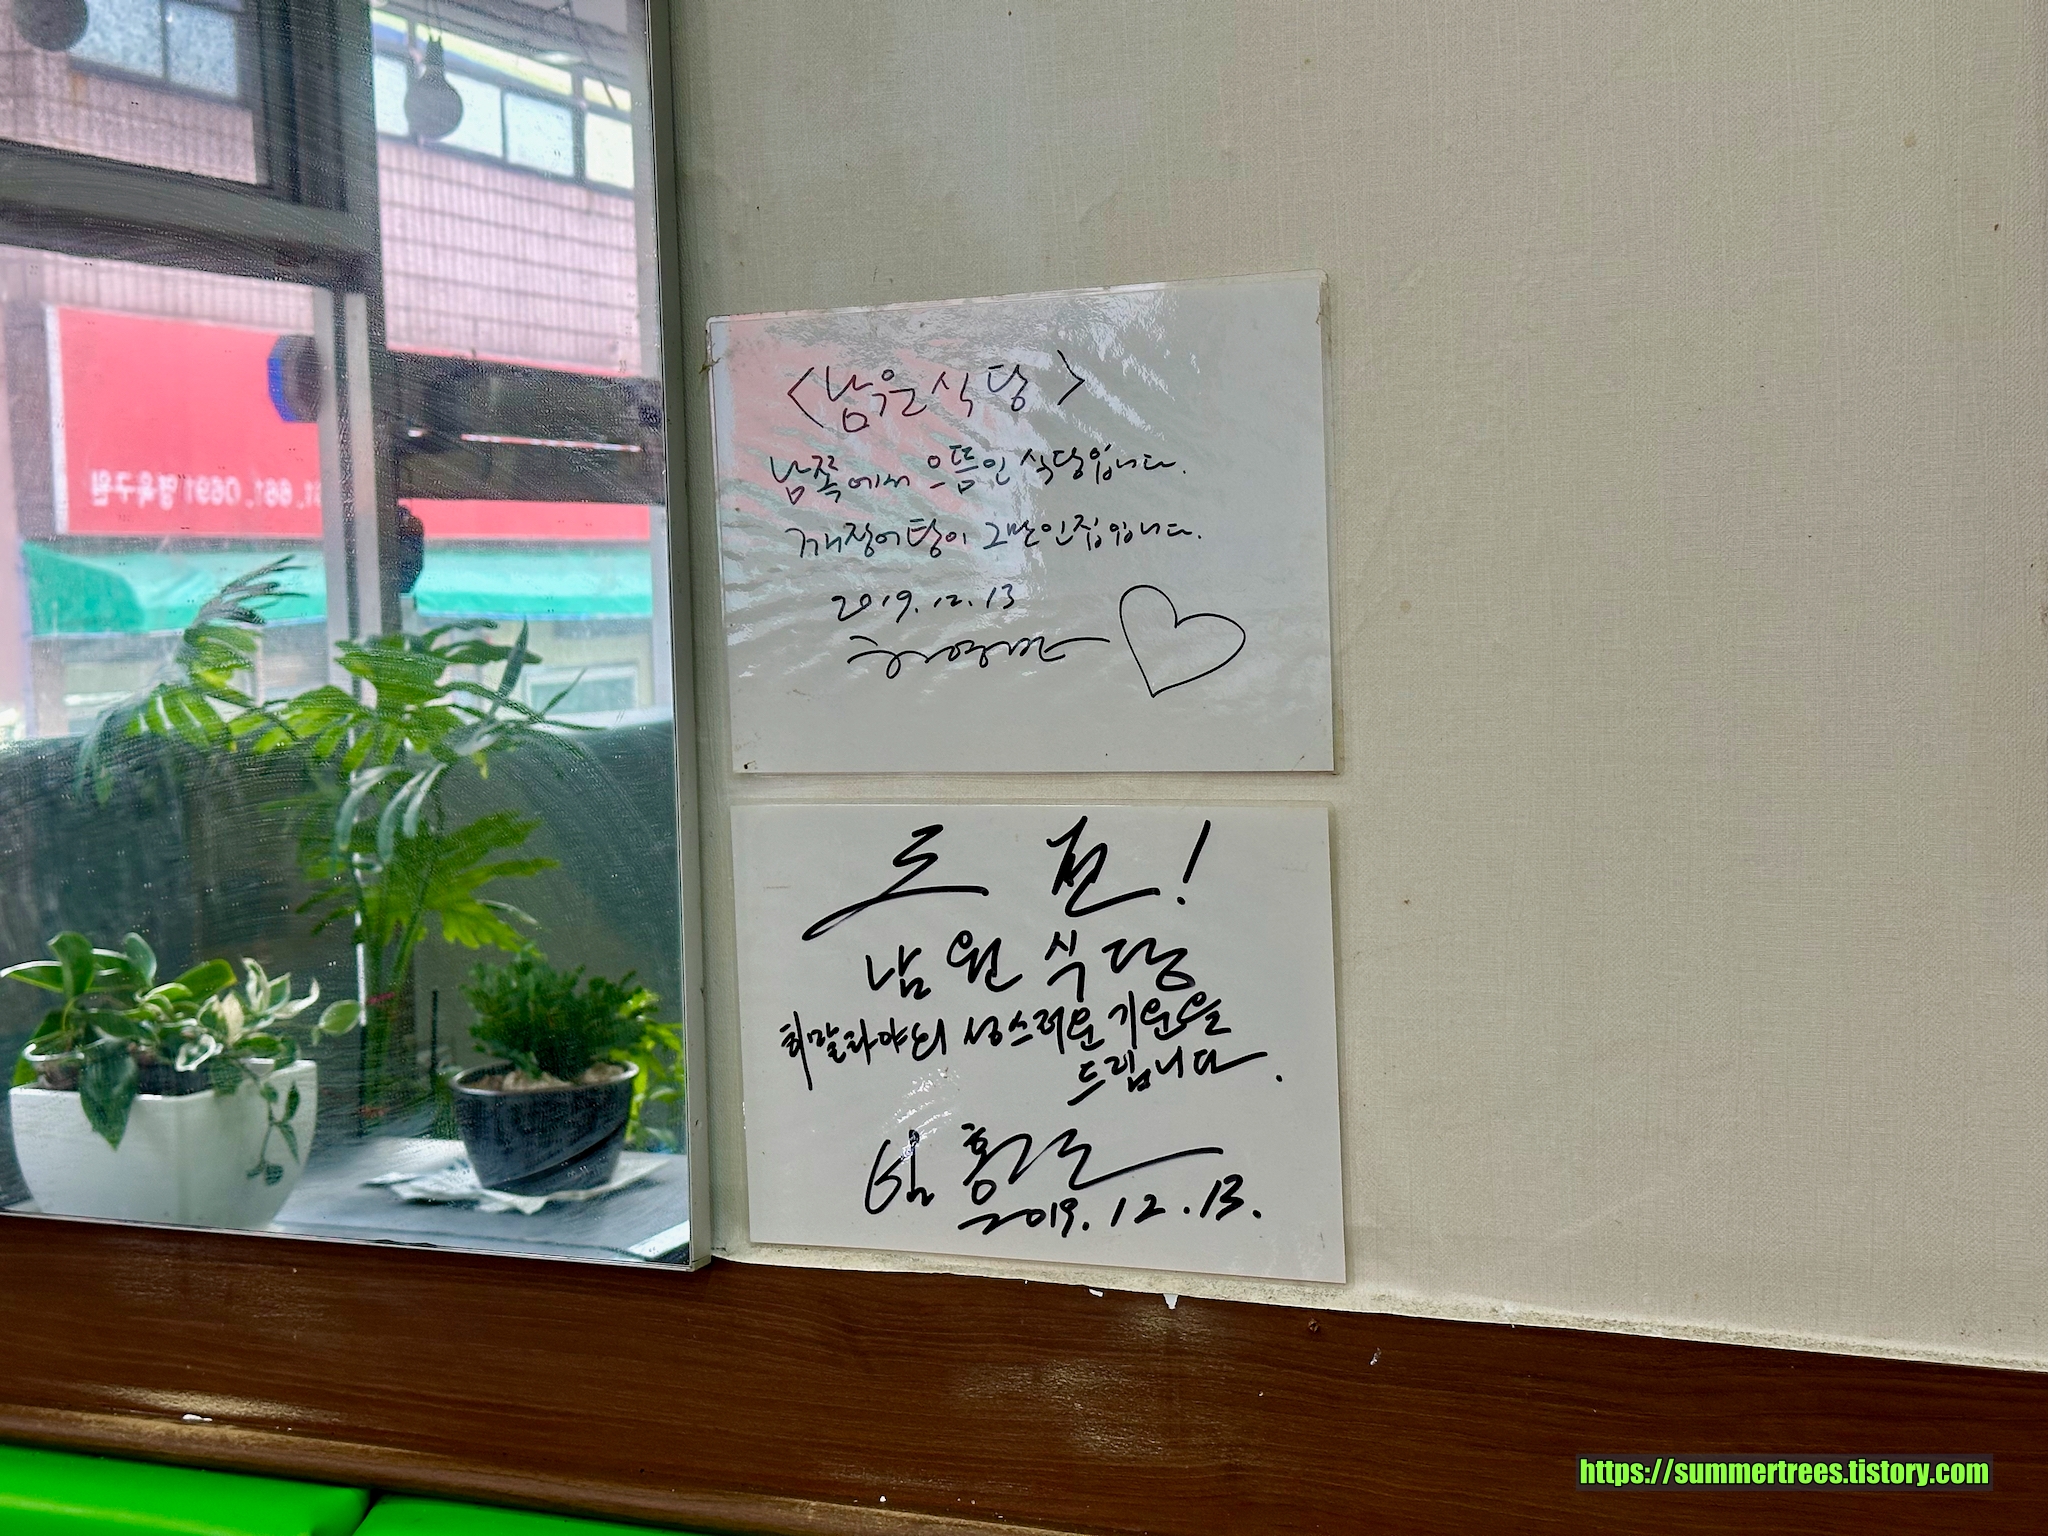 <남원식당>
남쪽에서 으뜸인 식당입니다.
개장어탕이 그만인집입니다.
2019.12.13
허영만
도전!
남원식당
희말라야의 성스러운 기운을
드립니다.
엄홍길
2019.12.13.
https://summertrees.tistory.com